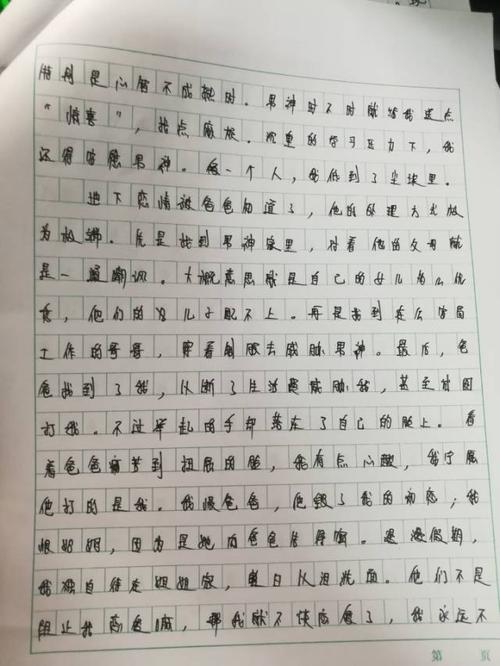 特别是心智不成熟时。男神时不时就给我送点
“惊喜”，找点麻烦。沉重的学习压力下，我
还得防患男神。爱一个人，我低到了尘埃里。
地下恋情被爸爸知道了，他的处理方式极
为极端。先是找到男神家里，对着他的父母就
是一通嘲讽。大概意思就是自己的女儿有多优
秀，他们的儿子配不上。再是找到在公安局
工作的哥哥，穿着制服去威胁男神。最后，爸
爸找到了我，以断了生活费威胁我，甚至试图
打我。不过举起的手却落在了自己的脸上。看
着爸爸痛苦到扭曲的脸，我有点心酸，我宁愿
他打的是我。我恨爸爸，他毁了我的初恋；我
恨姐姐，因为是她向爸爸告得密。是漫假期，
我独自待在姐姐家，整日以泪洗面。他们不是
阻止我恋爱嘛，那我就不谈恋爱了，我永远不
第 页